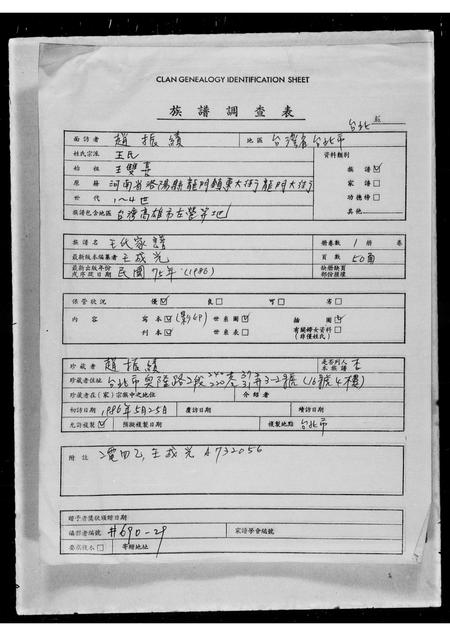 CLAN GENEALOGY IDENTIFICATION SHEET
族譜調查表
台北
面訪者 趙振績 地區 台灣省台北市
姓氏宗派 王氏 資料類別
始祖 王雙喜 族譜 ☑
原籍 河南省洛陽縣龍門鎮東大街龍門大街 家譜 □
世代 1~4世 功德榜 □
族譜包含地區 台灣高雄市左營等地 其他
族譜名 王氏家譜 冊卷數 1 冊 卷
最新版本編纂者 王成光 頁數 50面
最新出版年份或序跋日期 民國75年(1986) 缺冊缺頁部份抜樣
保管狀況 優 ☑ 良 □ 可 □ 劣 □
內容 寫本 ☑ (影印) 世系圖 ☑ 插圖 ☑
刊本 世系表 □ 有關婦女資料 □ (非僅姓氏)
珍藏者 趙振績 是否列入本族譜 否
珍藏者住址 台北市 路2段 3-2號(16號4樓)
珍藏者在(家)宗族中之地位 介紹者
初訪日期 1986年5月25日 覆訪日期 續訪日期
允許複製 ☑ 預擬複製日期 複製地點 台北市
附註 王成光 A732056
贈予者獎狀頒贈日期
編影者編號 #690-29 家譜學會編號
要求複本 □ 寄贈地址